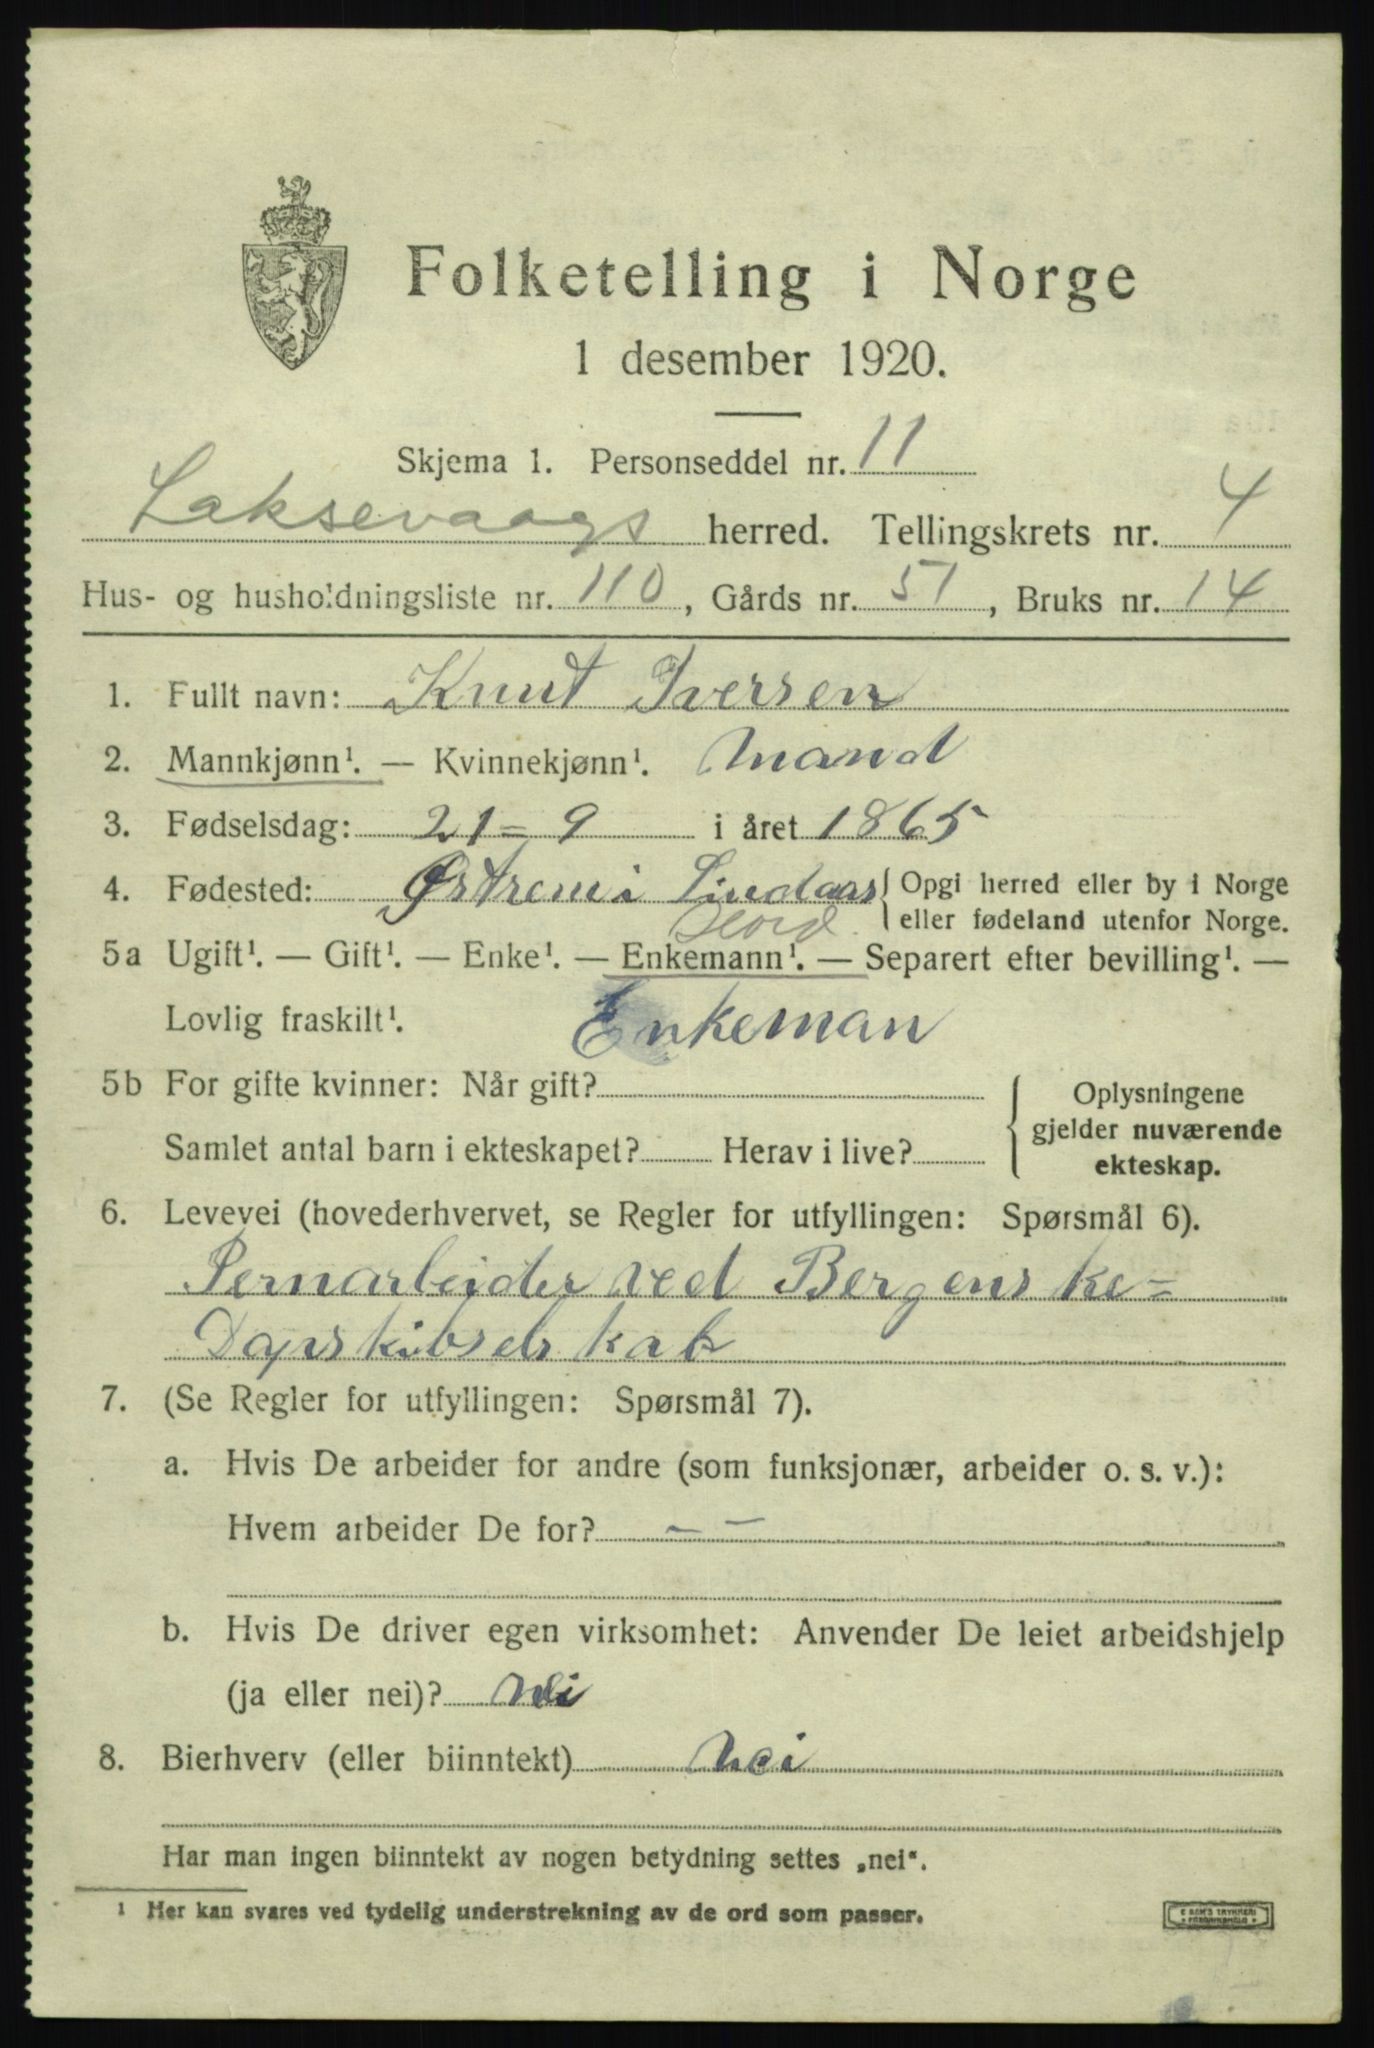 Folketelling i Norge
1 desember 1920.
Skjema 1. Personseddel nr. 11
Laksevaags herred. Tellingskrets nr. 4
Hus- og husholdningsliste nr. 110, Gårds nr. 51, Bruks nr. 14
1. Fullt navn: Knut Iversen
2. Mannkjønn¹. — Kvinnekjønn¹. Mand
3. Fødselsdag: 21 = 9 i året 1865
4. Fødested: Østrem i Lindaas { Opgi herred eller by i Norge
Hord. eller fødeland utenfor Norge.
5a Ugift¹. — Gift¹. — Enke¹. — Enkemann¹. — Separert efter bevilling¹. —
Lovlig fraskilt¹. Enkeman
5b For gifte kvinner: Når gift?
Samlet antal barn i ekteskapet? Herav i live?
{ Oplysningene
gjelder nuværende
ekteskap.
6. Levevei (hovederhvervet, se Regler for utfyllingen: Spørsmål 6).
Jernarbeider ved Bergenske=
Dapskibselskab
7. (Se Regler for utfyllingen: Spørsmål 7).
a. Hvis De arbeider for andre (som funksjonær, arbeider o. s. v.):
Hvem arbeider De for? – –
b. Hvis De driver egen virksomhet: Anvender De leiet arbeidshjelp
(ja eller nei)? Nei
8. Bierhverv (eller biinntekt) Nei
Har man ingen biinntekt av nogen betydning settes „nei“.
¹ Her kan svares ved tydelig understrekning av de ord som passer.